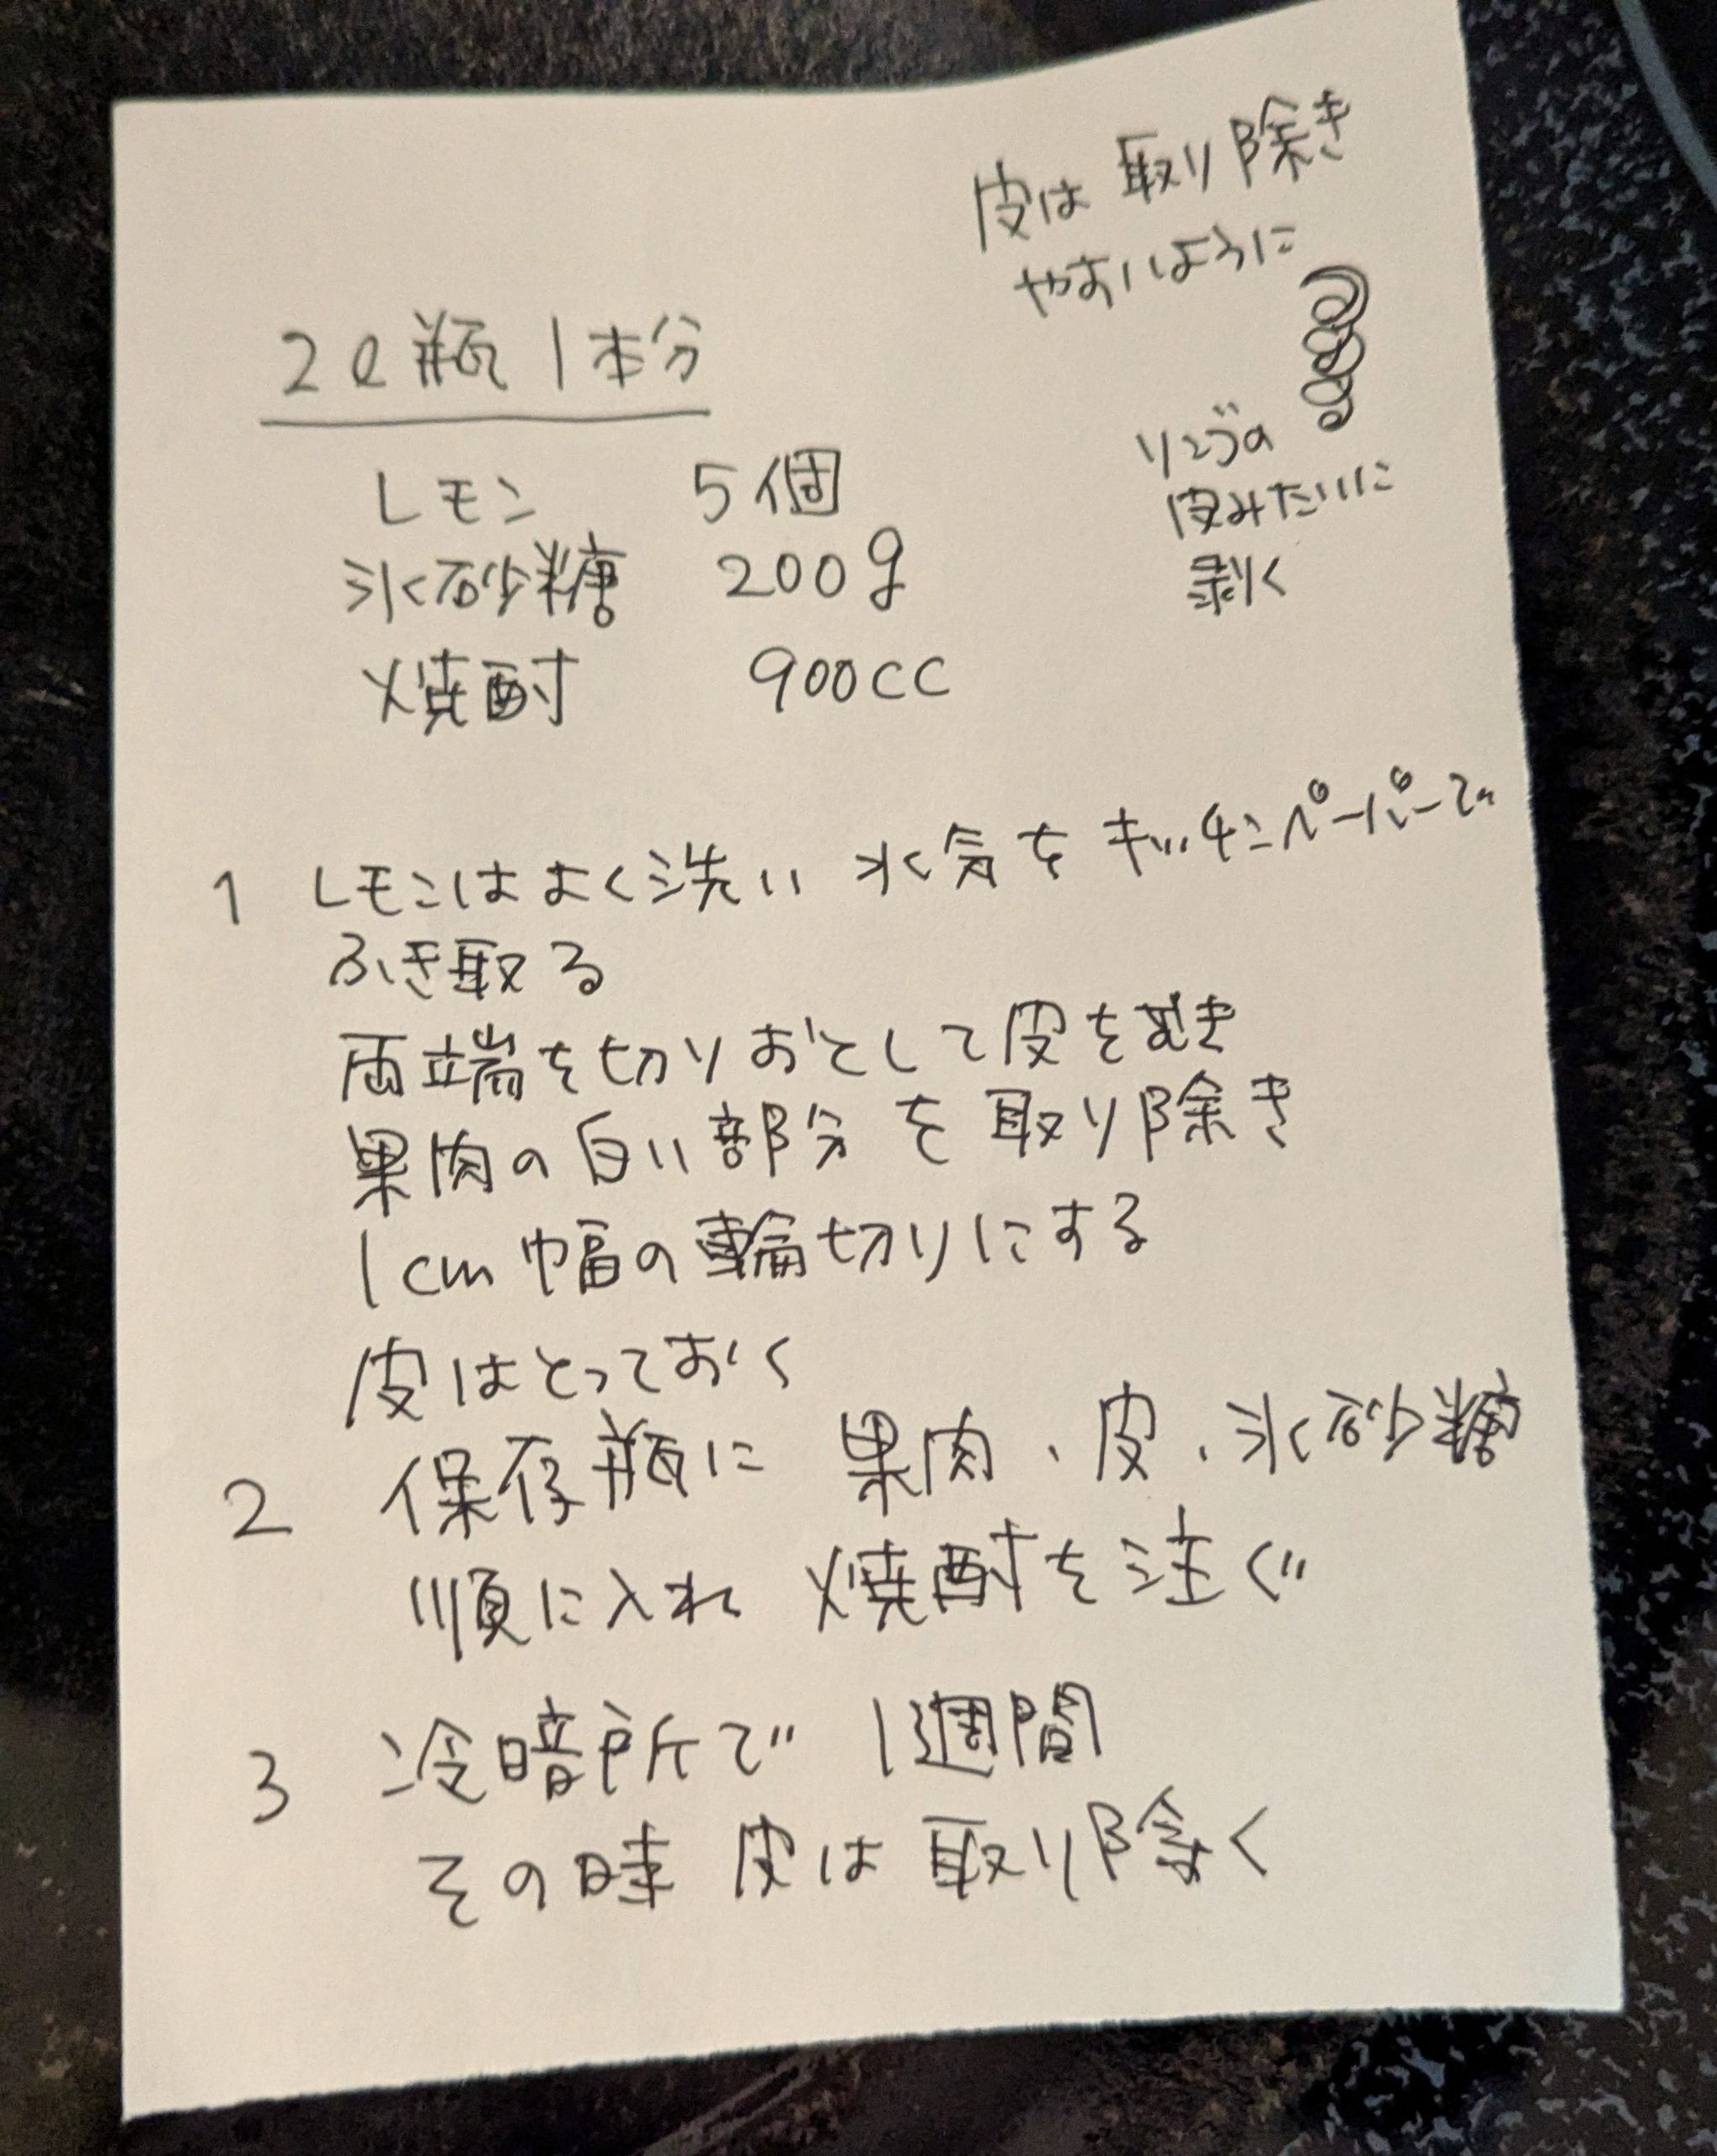 皮は取り除き
やすいように
リンゴの
皮みたいに
剥く
2ℓ瓶1本分
レモン 5個
氷砂糖 200g
焼酎 900cc
1 レモンはよく洗い 水気をキッチンペーパーで
ふき取る
両端を切りおとして皮をむき
果肉の白い部分を取り除き
1cm幅の輪切りにする
皮はとっておく
2 保存瓶に 果肉、皮、氷砂糖
順に入れ 焼酎を注ぐ
3 冷暗所で 1週間
その時 皮は取り除く